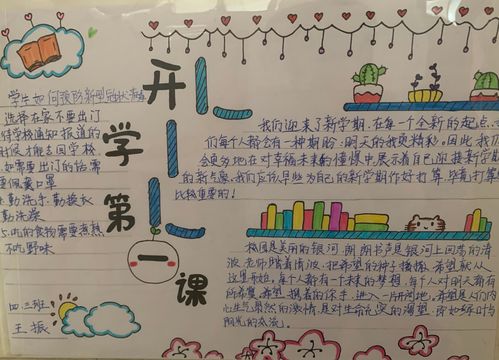 开
学
第
一
课
学生如何预防新型冠状病毒
选择在家不要出门
待学校通知报道的
时候才能去回学校
如需要出门的话需
要佩戴口罩
4.勤洗手勤换衣
勤洗澡
5.吃的食物需要煮熟
不吃野味
四.三班
王振
我们迎来了新学期,在每一个全新的起点,
们每个人都会有一种期盼:明天的我更精彩。因此我们
会更多地在对幸福未来的憧憬中展示着自己迎接新学期
的新气象,我们应该早些为自己的新学期作好打算,毕竟打算
比较重要的!
校园是美丽的银河,朗朗书声是银河上回荡的清
波,老师踏着清波,把希望的种子播撒,希望就从
这里开始,每个人都有一个未来的梦想,每个人对明天都有
所希望,希望携着你手,进入一片新阔地,希望是人们内
心生气勃然的激情,是对生命充实的渴望,即如绿叶与
阳光的交流。